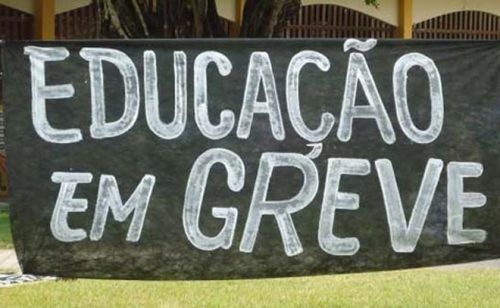 EDUCAÇÃO
EM GREVE